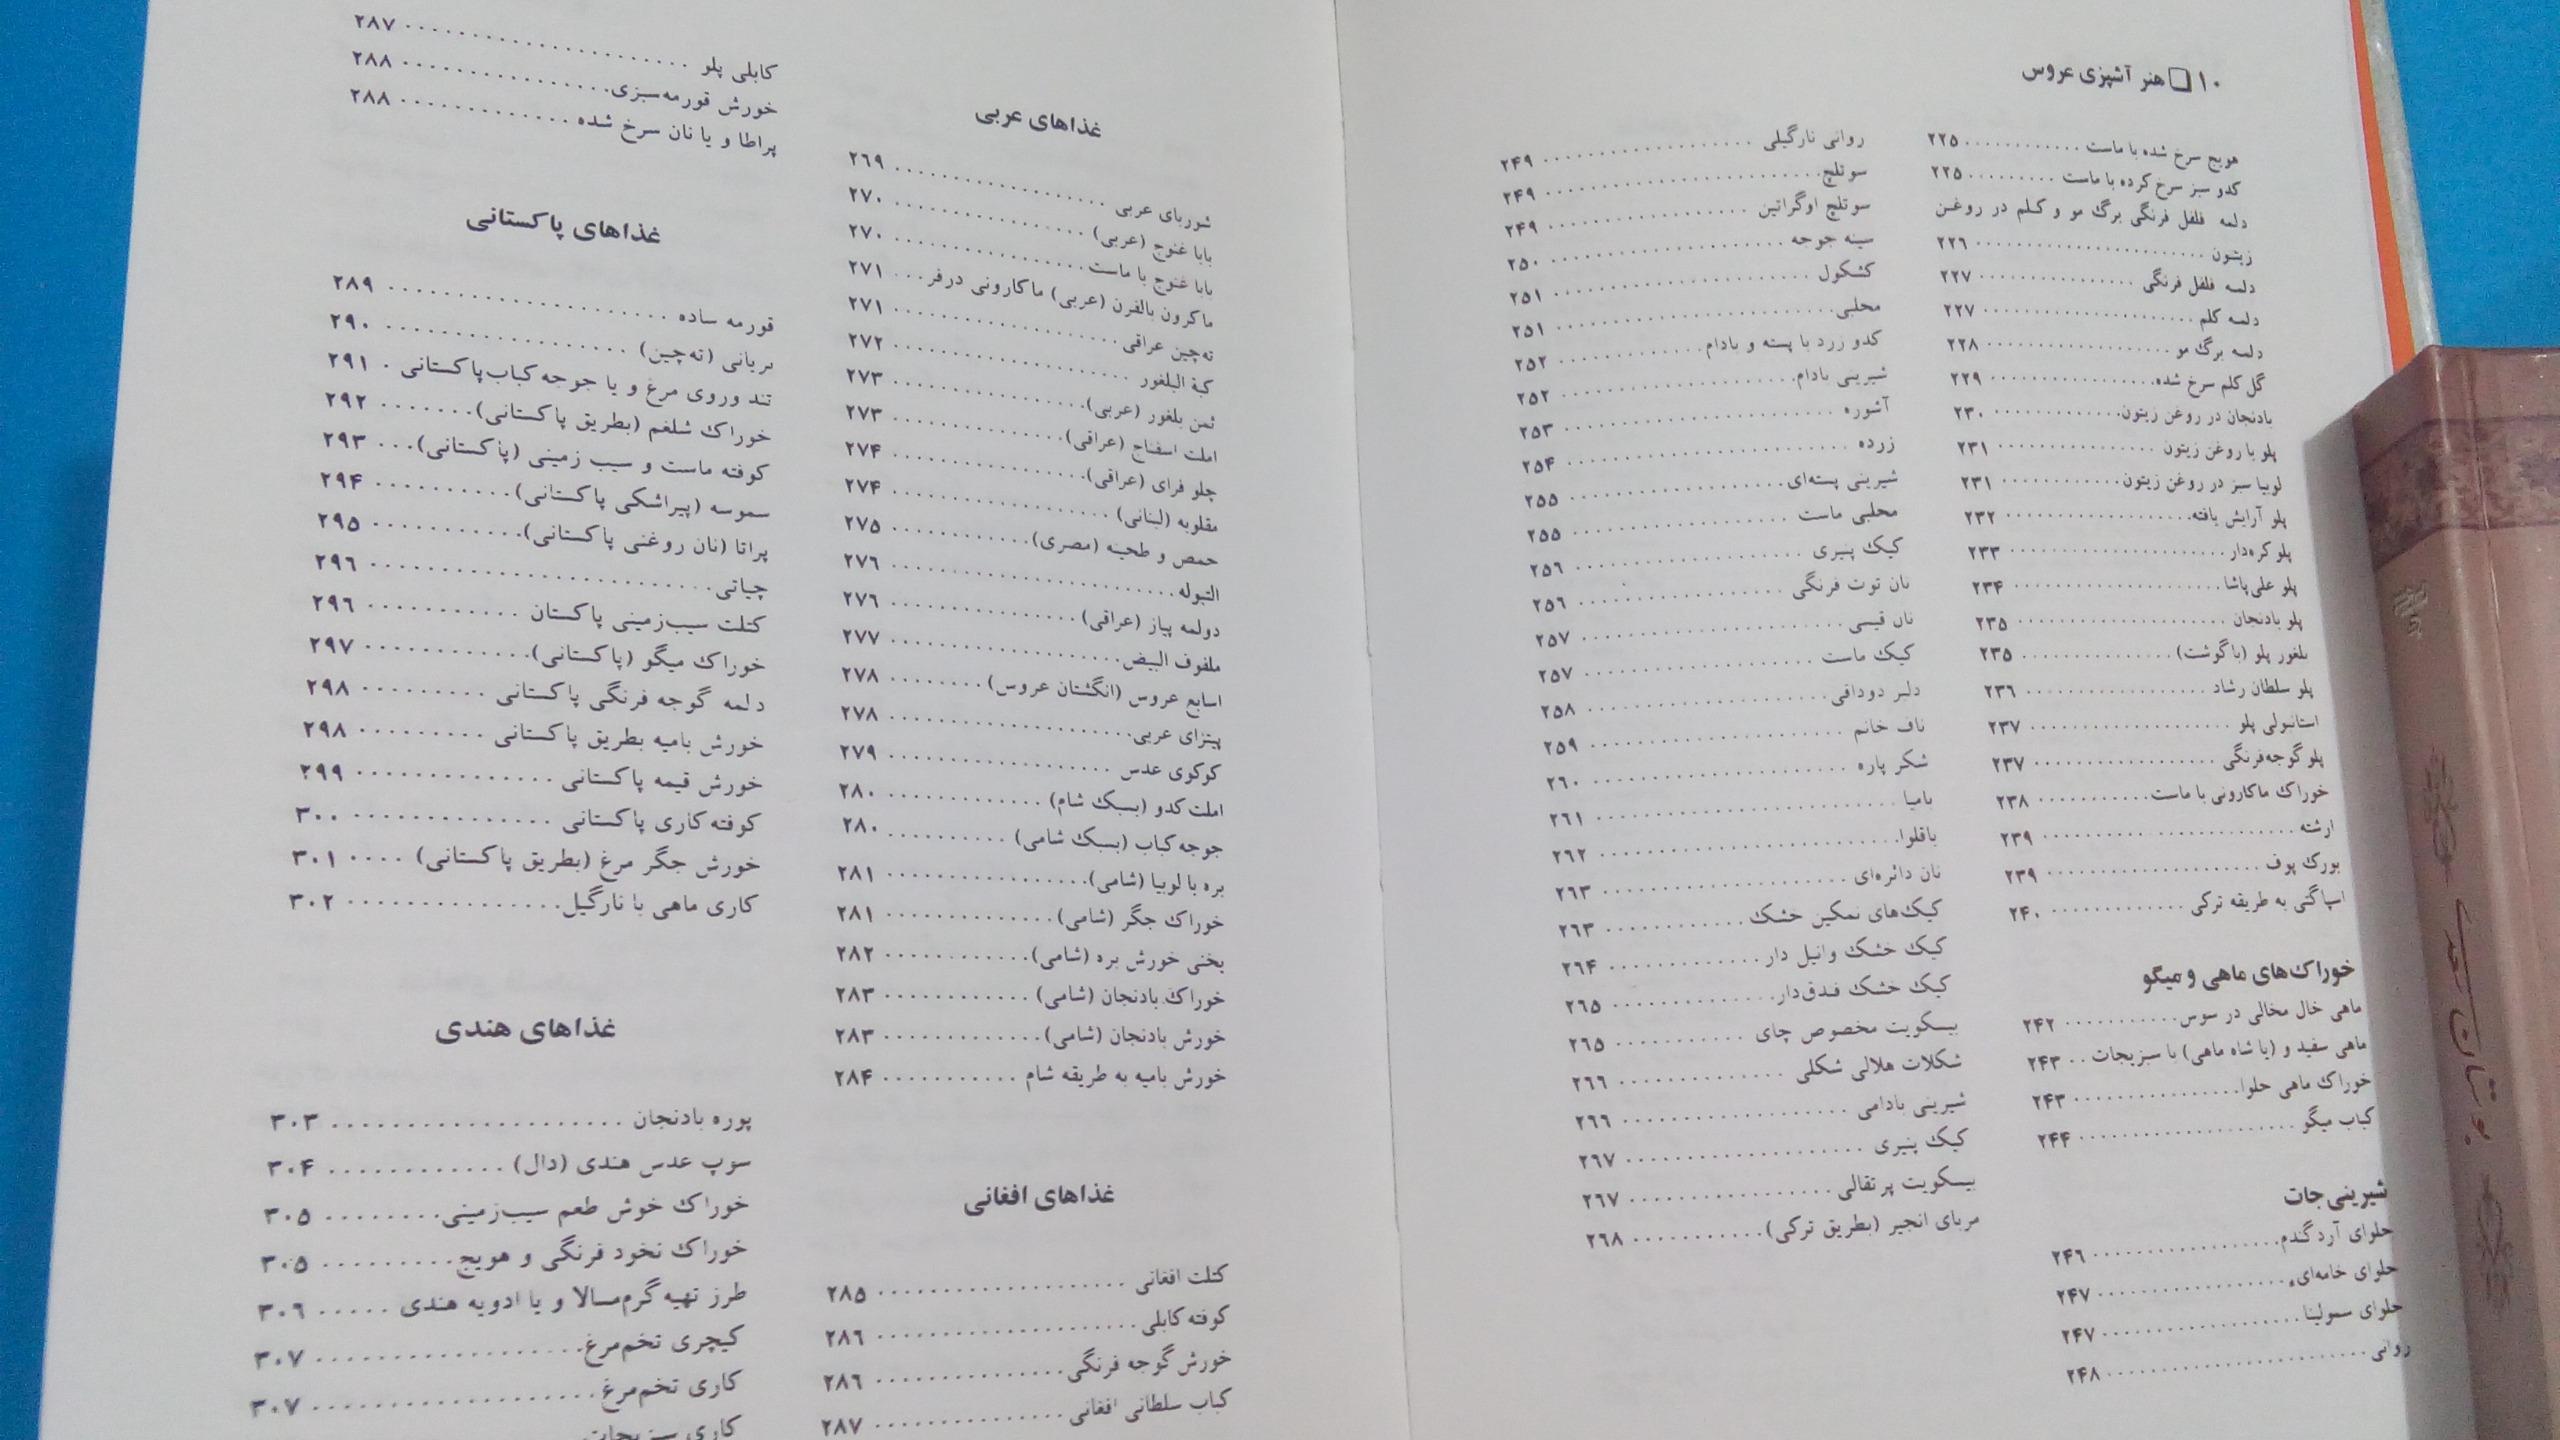 ۱۰ ❑ هنر آشپزی عروس
هویج سرخ شده با ماست ............ ۲۲۵
کدو سبز سرخ کرده با ماست ......... ۲۲۵
دلمه فلفل فرنگی برگ مو و کلم در روغن
زیتون ........................ ۲۲۶
دلمه فلفل فرنگی ................ ۲۲۷
دلمه کلم ...................... ۲۲۷
دلمه برگ مو ................... ۲۲۸
گل کلم سرخ شده ................ ۲۲۹
بادنجان در روغن زیتون ............. ۲۳۰
پلو با روغن زیتون ................ ۲۳۱
لوبیا سبز در روغن زیتون ............ ۲۳۱
پلو آرایش یافته .................. ۲۳۲
پلو کره‌دار ...................... ۲۳۳
پلو علی‌پاشا ..................... ۲۳۴
پلو بادنجان ..................... ۲۳۵
بلغور پلو (با گوشت) ............... ۲۳۵
پلو سلطان رشاد .................. ۲۳۶
استانبولی پلو .................... ۲۳۷
پلو گوجه‌فرنگی .................. ۲۳۷
خوراک ماکارونی با ماست ........... ۲۳۸
ارشته ......................... ۲۳۹
بورک پوف ...................... ۲۳۹
اسپاگتی به طریقه ترکی ............. ۲۴۰
خوراک‌های ماهی و میگو
ماهی خال مخالی در سوس ........... ۲۴۲
ماهی سفید و (یا شاه ماهی) با سبزیجات .. ۲۴۳
خوراک ماهی حلوا ................ ۲۴۳
کباب میگو ..................... ۲۴۴
شیرینی‌جات
حلوای آرد گندم .................. ۲۴۶
حلوای خامه‌ای .................. ۲۴۷
حلوای سمولینا .................. ۲۴۷
روانی ......................... ۲۴۸
روانی نارگیلی ................... ۲۴۹
سوتلچ ........................ ۲۴۹
سوتلچ اوگراتین .................. ۲۴۹
سینه جوجه ..................... ۲۵۰
کشکول ....................... ۲۵۱
محلبی ........................ ۲۵۱
کدو زرد با پسته و بادام ............. ۲۵۲
شیرینی بادام .................... ۲۵۲
آشوره ........................ ۲۵۳
زرده ......................... ۲۵۴
شیرینی پسته‌ای .................. ۲۵۵
محلبی ماست ................... ۲۵۵
کیک پنیری .................... ۲۵۶
نان توت فرنگی .................. ۲۵۶
نان قیسی ...................... ۲۵۷
کیک ماست .................... ۲۵۷
دلبر دوداقی .................... ۲۵۸
ناف خانم ...................... ۲۵۹
شکر پاره ...................... ۲۶۰
بامیا ......................... ۲۶۱
باقلوا ........................ ۲۶۲
نان دائره‌ای .................... ۲۶۳
کیک‌های نمکین خشک ............ ۲۶۳
کیک خشک وانیل دار ............. ۲۶۴
کیک خشک فندق‌دار .............. ۲۶۵
بیسکویت مخصوص چای ........... ۲۶۵
شکلات هلالی شکلی ............. ۲۶۶
شیرینی بادامی .................. ۲۶۶
کیک پنیری .................... ۲۶۷
بیسکویت پرتقالی ................ ۲۶۷
مربای انجیر (بطریق ترکی) ........... ۲۶۸
غذاهای عربی
شوربای عربی .................. ۲۶۹
بابا غنوج (عربی) ................ ۲۷۰
بابا غنوج با ماست ................ ۲۷۰
ماکرون بالفرن (عربی) ماکارونی در فر ... ۲۷۱
ته‌چین عراقی ................... ۲۷۱
کبة البلغور .................... ۲۷۲
ثمن بلغور (عربی) ................ ۲۷۳
املت اسفناج (عراقی) .............. ۲۷۳
چلو فرای (عراقی) ................ ۲۷۴
مقلوبه (لبنانی) .................. ۲۷۴
حمص و طحینه (مصری) ............ ۲۷۵
التبوله ........................ ۲۷۶
دولمه پیاز (عراقی) ................ ۲۷۶
ملفوف البیض ................... ۲۷۷
اسابع عروس (انگشتان عروس) ........ ۲۷۸
پیتزای عربی .................... ۲۷۸
کوکوی عدس ................... ۲۷۹
املت کدو (بسبک شام) ............. ۲۸۰
جوجه کباب (بسبک شامی) .......... ۲۸۰
بره با لوبیا (شامی) ................ ۲۸۱
خوراک جگر (شامی) .............. ۲۸۱
یخنی خورش بره (شامی) ............ ۲۸۲
خوراک بادنجان (شامی) ............ ۲۸۳
خورش بادنجان (شامی) ............. ۲۸۳
خورش بامیه به طریقه شام ........... ۲۸۴
غذاهای افغانی
کتلت افغانی .................... ۲۸۵
کوفته کابلی .................... ۲۸۶
خورش گوجه فرنگی .............. ۲۸۶
کباب سلطانی افغانی .............. ۲۸۷
کابلی پلو ...................... ۲۸۷
خورش قورمه‌سبزی ............... ۲۸۸
پراطا و یا نان سرخ شده ............. ۲۸۸
غذاهای پاکستانی
قورمه ساده .................... ۲۸۹
بریانی (ته‌چین) .................. ۲۹۰
تند وروی مرغ و یا جوجه کباب پاکستانی . ۲۹۱
خوراک شلغم (بطریق پاکستانی) ....... ۲۹۲
کوفته ماست و سیب زمینی (پاکستانی) ... ۲۹۳
سموسه (پیراشکی پاکستانی) .......... ۲۹۴
پراتا (نان روغنی پاکستانی) ........... ۲۹۵
چپاتی ........................ ۲۹۶
کتلت سیب‌زمینی پاکستان ........... ۲۹۶
خوراک میگو (پاکستانی) ............ ۲۹۷
دلمه گوجه فرنگی پاکستانی ......... ۲۹۸
خورش بامیه بطریق پاکستانی ......... ۲۹۸
خورش قیمه پاکستانی .............. ۲۹۹
کوفته کاری پاکستانی .............. ۳۰۰
خورش جگر مرغ (بطریق پاکستانی) .... ۳۰۱
کاری ماهی با نارگیل .............. ۳۰۲
غذاهای هندی
پوره بادنجان .................... ۳۰۳
سوپ عدس هندی (دال) ............ ۳۰۴
خوراک خوش طعم سیب‌زمینی ........ ۳۰۵
خوراک نخود فرنگی و هویج ......... ۳۰۵
طرز تهیه گرم‌مسالا و یا ادویه هندی ..... ۳۰۶
کیچری تخم‌مرغ ................. ۳۰۷
کاری تخم‌مرغ .................. ۳۰۷
کاری سبزیجات